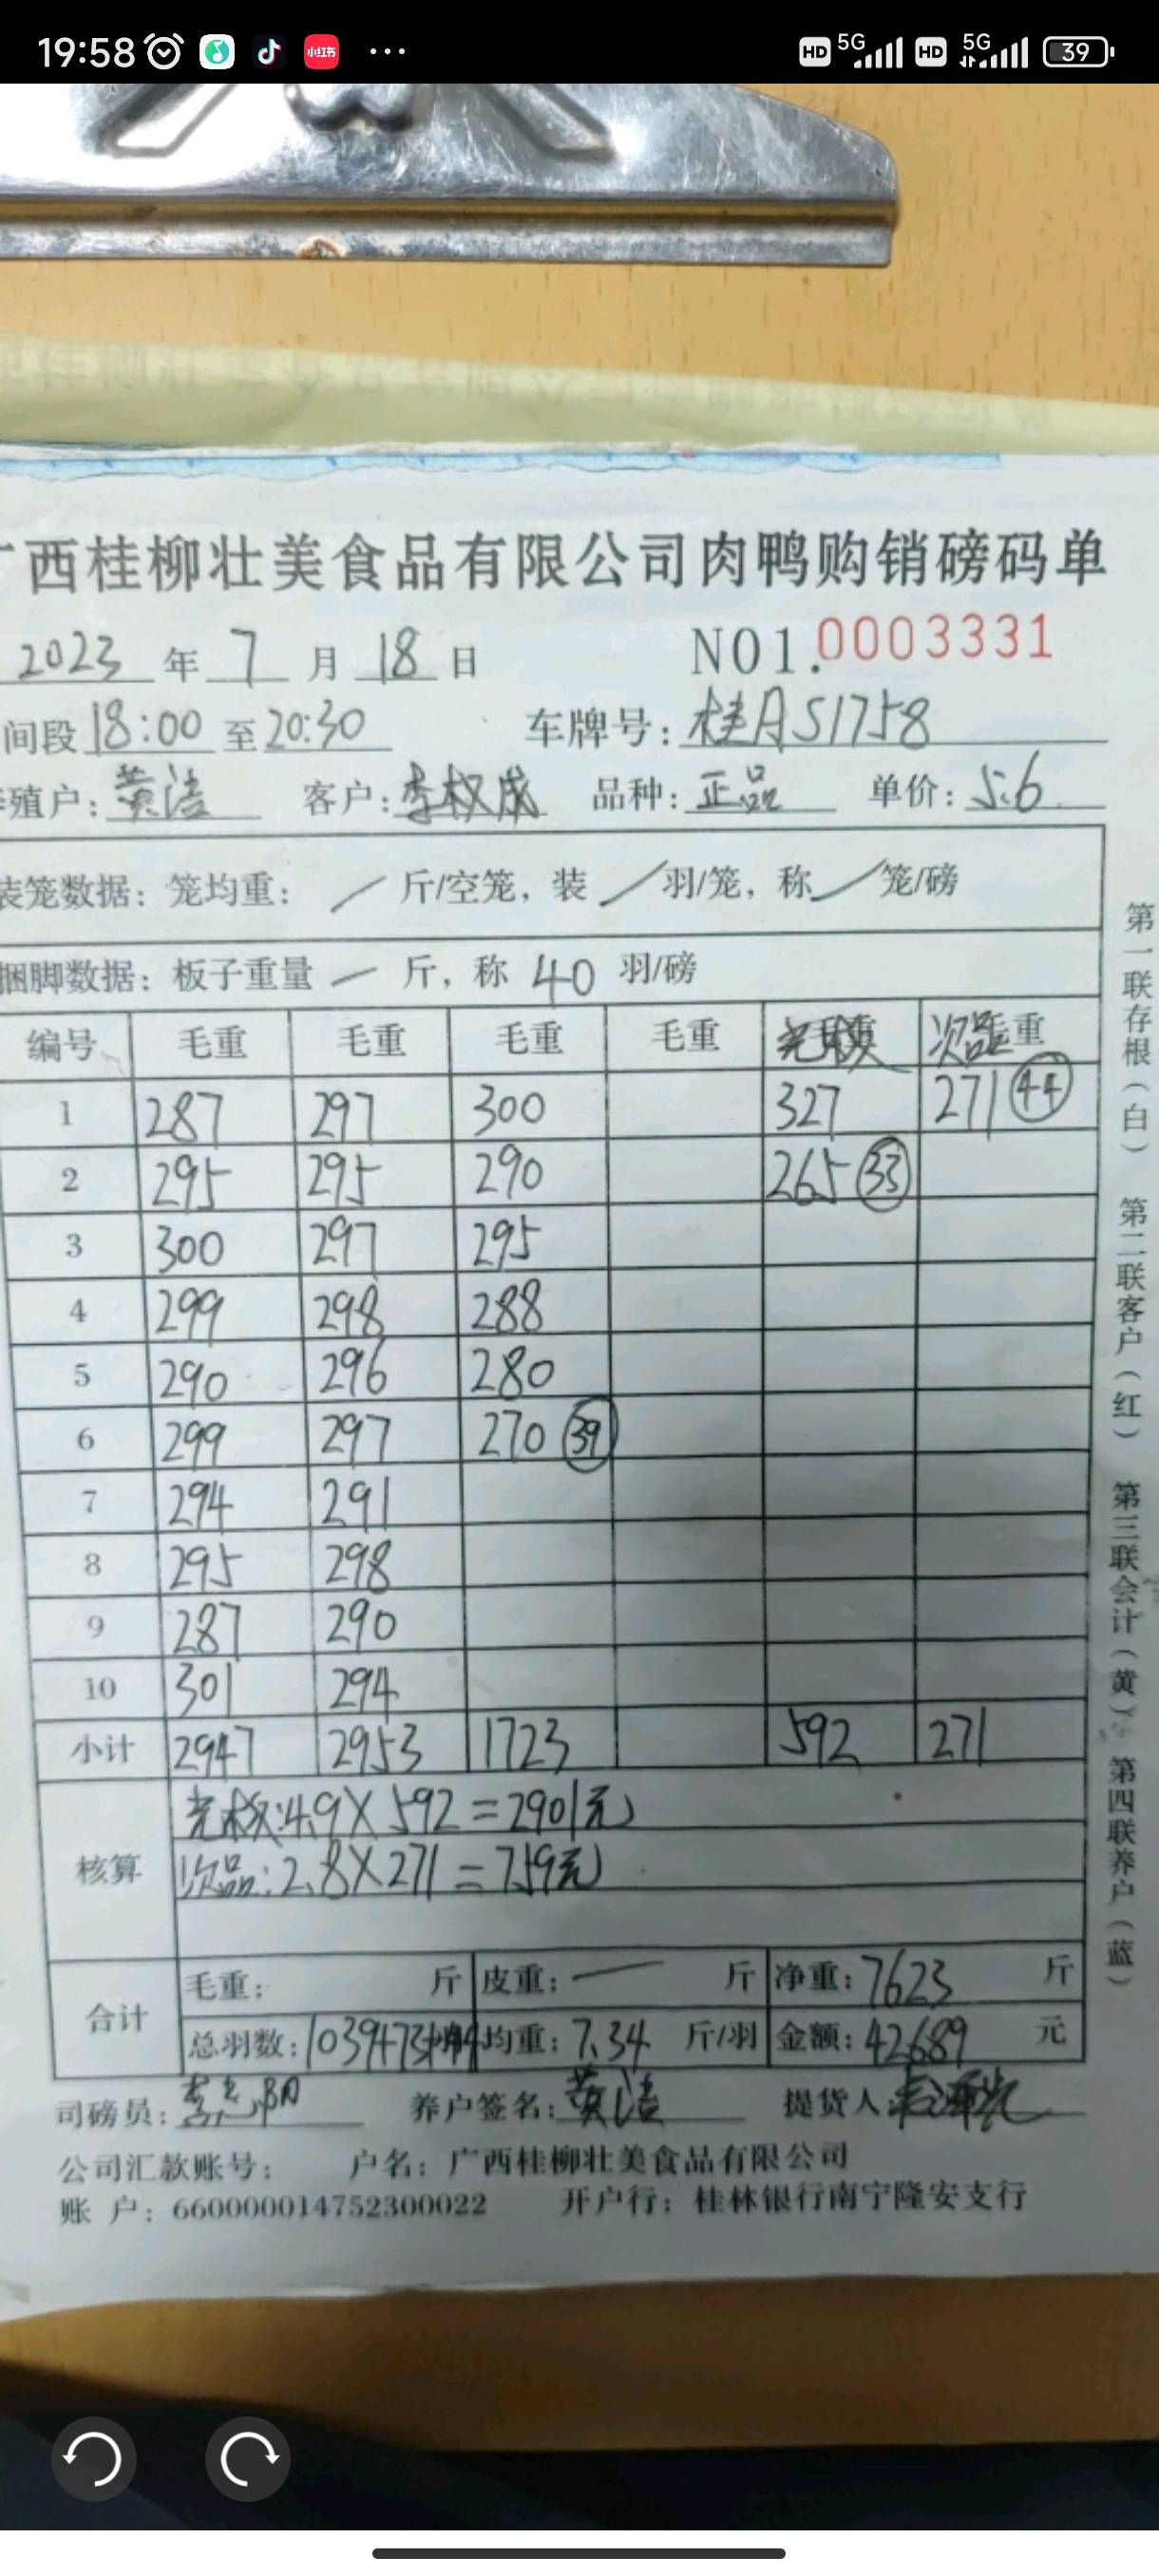 19:58 小红书 ... HD 5G HD 5G 39
西桂柳壮美食品有限公司肉鸭购销磅码单
2023 年 7 月 18 日 NO1.0003331
间段 18:00 至 20:30 车牌号: 桂A51758
殖户: 黄洁 客户: 李权威 品种: 正品 单价: 5.6
装笼数据: 笼均重: / 斤/空笼, 装 / 羽/笼, 称 / 笼/磅
捆脚数据: 板子重量 — 斤, 称 40 羽/磅
编号 毛重 毛重 毛重 毛重 次品 重
1 287 297 300 327 271 44
2 295 295 290 265 33
3 300 297 295
4 299 298 288
5 290 296 280
6 299 297 270 39
7 294 291
8 295 298
9 287 290
10 301 294
小计 2947 2953 1723 592 271
核算
4.9X592=2901元
次品:2.8X271=759元
合计
毛重: 斤 皮重: — 斤 净重: 7623 斤
总羽数: 1039+73+44 均重: 7.34 斤/羽 金额: 42689 元
司磅员: 养户签名: 黄洁 提货人:
公司汇款账号: 户名: 广西桂柳壮美食品有限公司
账 户: 660000014752300022 开户行: 桂林银行南宁隆安支行
第一联存根(白) 第二联客户(红) 第三联会计(黄) 第四联养户(蓝)